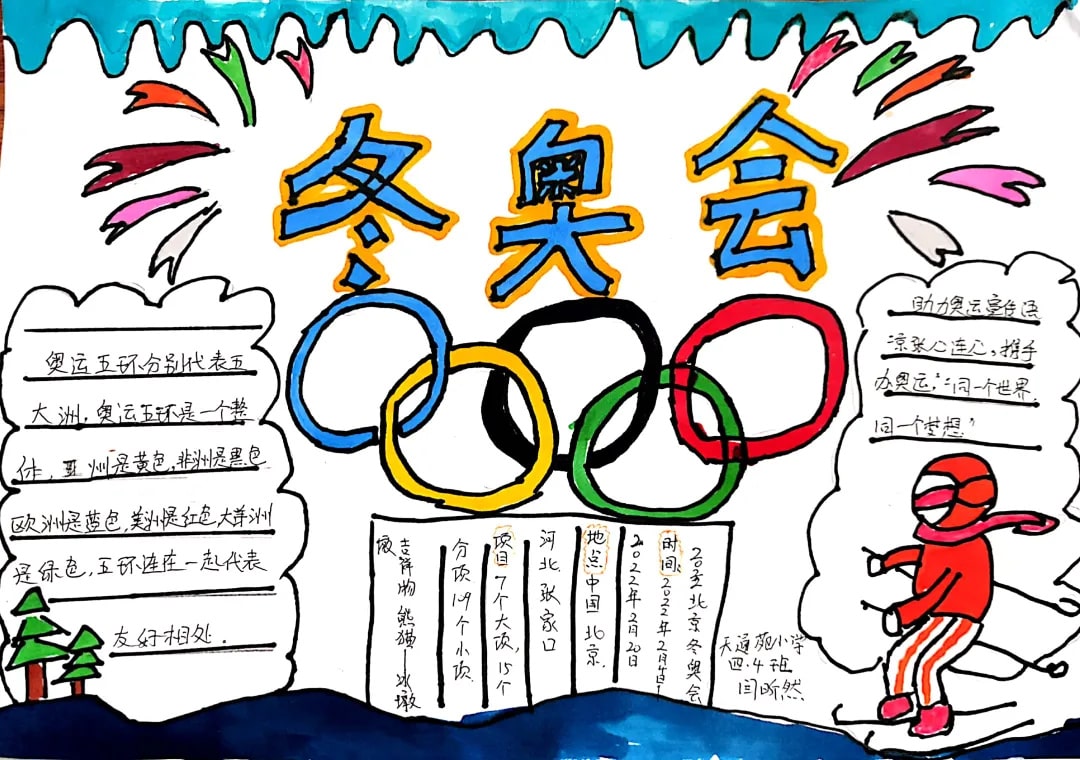 冬奥会
奥运五环分别代表五
大洲，奥运五环是一个整
体，亚洲是黄色，非洲是黑色
欧洲是蓝色，美洲是红色，大洋洲
是绿色，五环连在一起代表
友好相处．
助力奥运宣传语
京张心连心，携手
办奥运，“同一个世界
同一个梦想”
2022北京冬奥会
时间：2022年2月4日—
2022年2月20日
地点 中国 北京．
河北 张家口
项目 7个大项，15个
分项 109个小项
吉祥物 熊猫—冰墩
墩
天通苑小学
四．4班
闫昕然